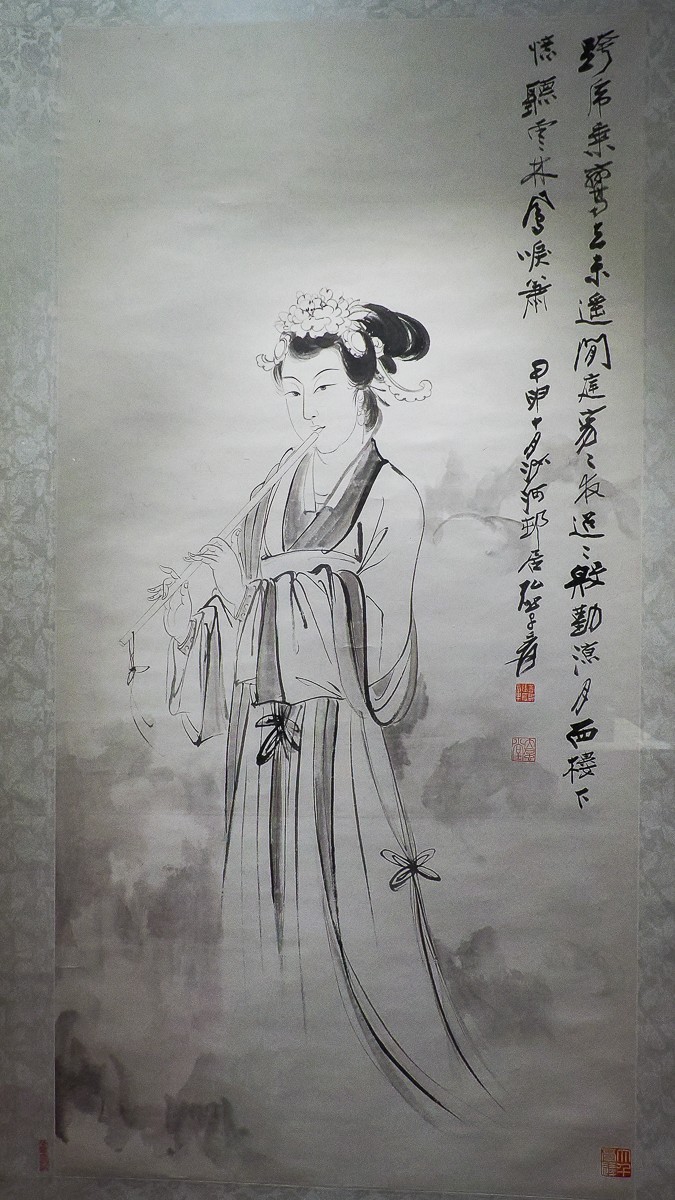 跨虎乘鸞去未遥閒庭寂々夜迢々殷勤凉月西樓下
憶聽雲林鳳唳簫
甲申十月沙河邨居 爰